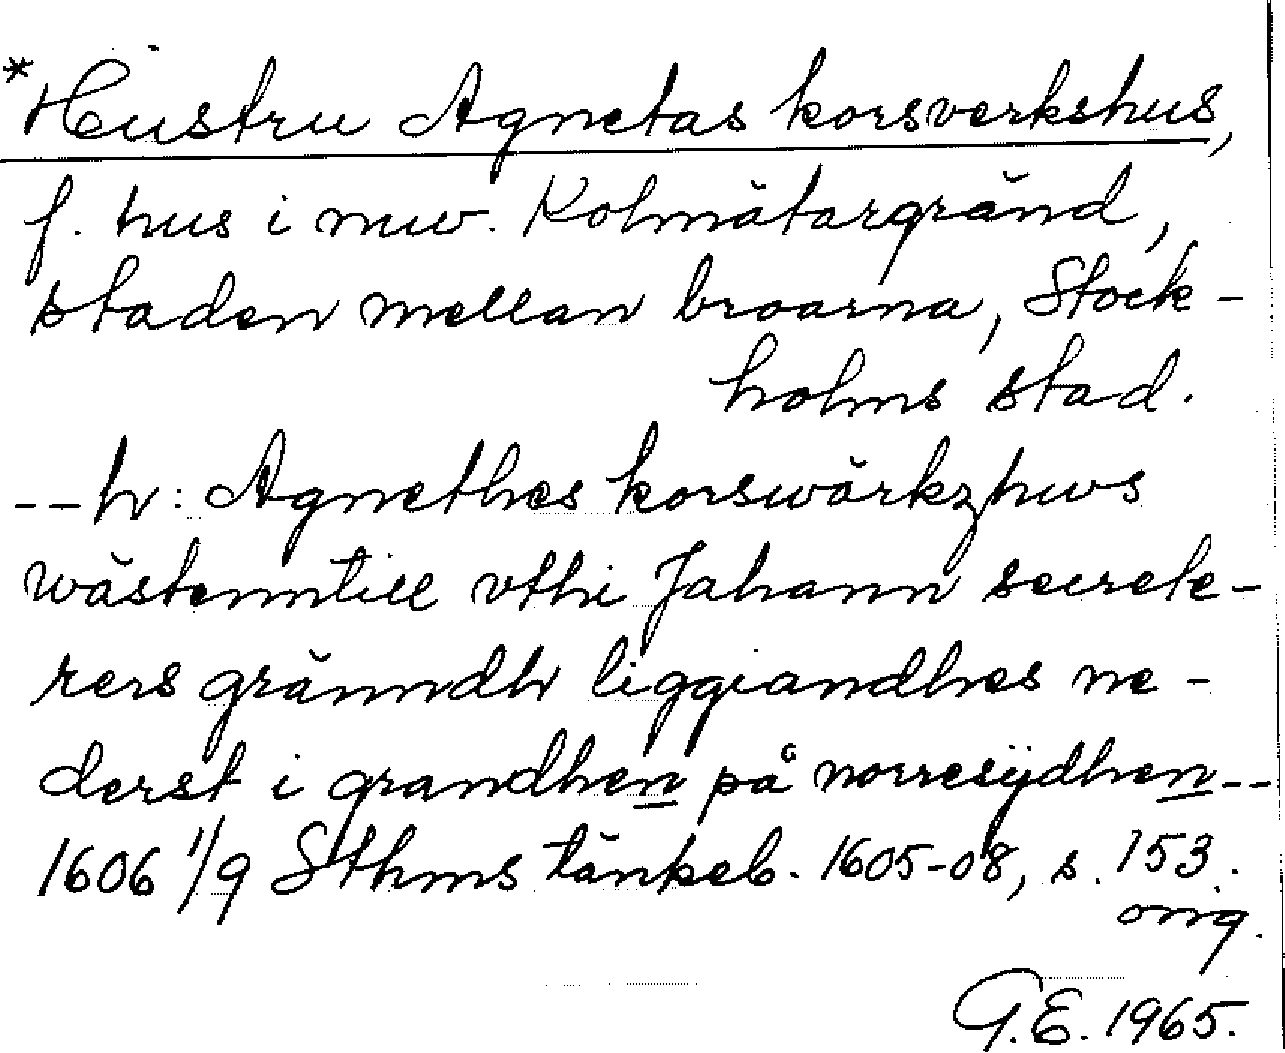 *Hustru Agnetas korsverkshus,
f. hus i nuv. Kolmätargränd,
staden mellan broarna, Stock-
holms stad.
--h: Agnethes korswärkzhws
wästenntill vthi Jahann secrete-
rers gränndh liggiandhes ne-
derst i grandhen på norresÿdhen--
1606 1/9 Sthms tänkeb. 1605-08, s. 153.
orig.
G.E. 1965.